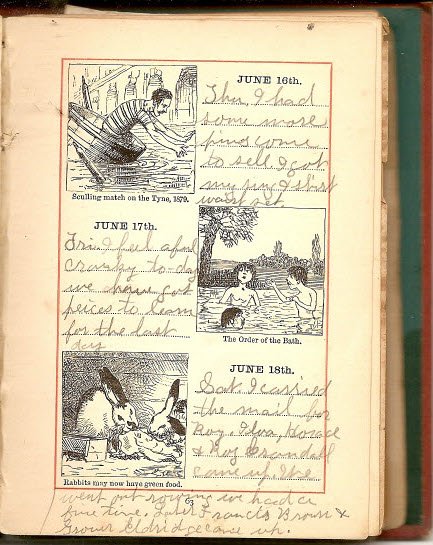 JUNE 16th.
Thu. I had
some more
pins come
to sell I got
my ring & shirt
waist set.
Sculling match on the Tyne, 1879.
JUNE 17th.
Fri. I feel
cranky to-day
we have got
peices to learn
for the last
day
The Order of the Bath.
JUNE 18th.
Sat. I carried
the mail for
Roy. Elva, Howard
& Roy Crandall
came up. We
Rabbits may now have green food.
63
went out rowing we had a
fine time. Francis Brown &
Grover Eldridge came up.